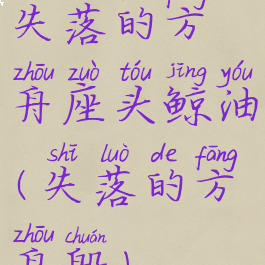 失落的方
zhōu zuò tóu jīng yóu
舟座头鲸油
shī luò de fāng
(失落的方
zhōu chuán
舟船)